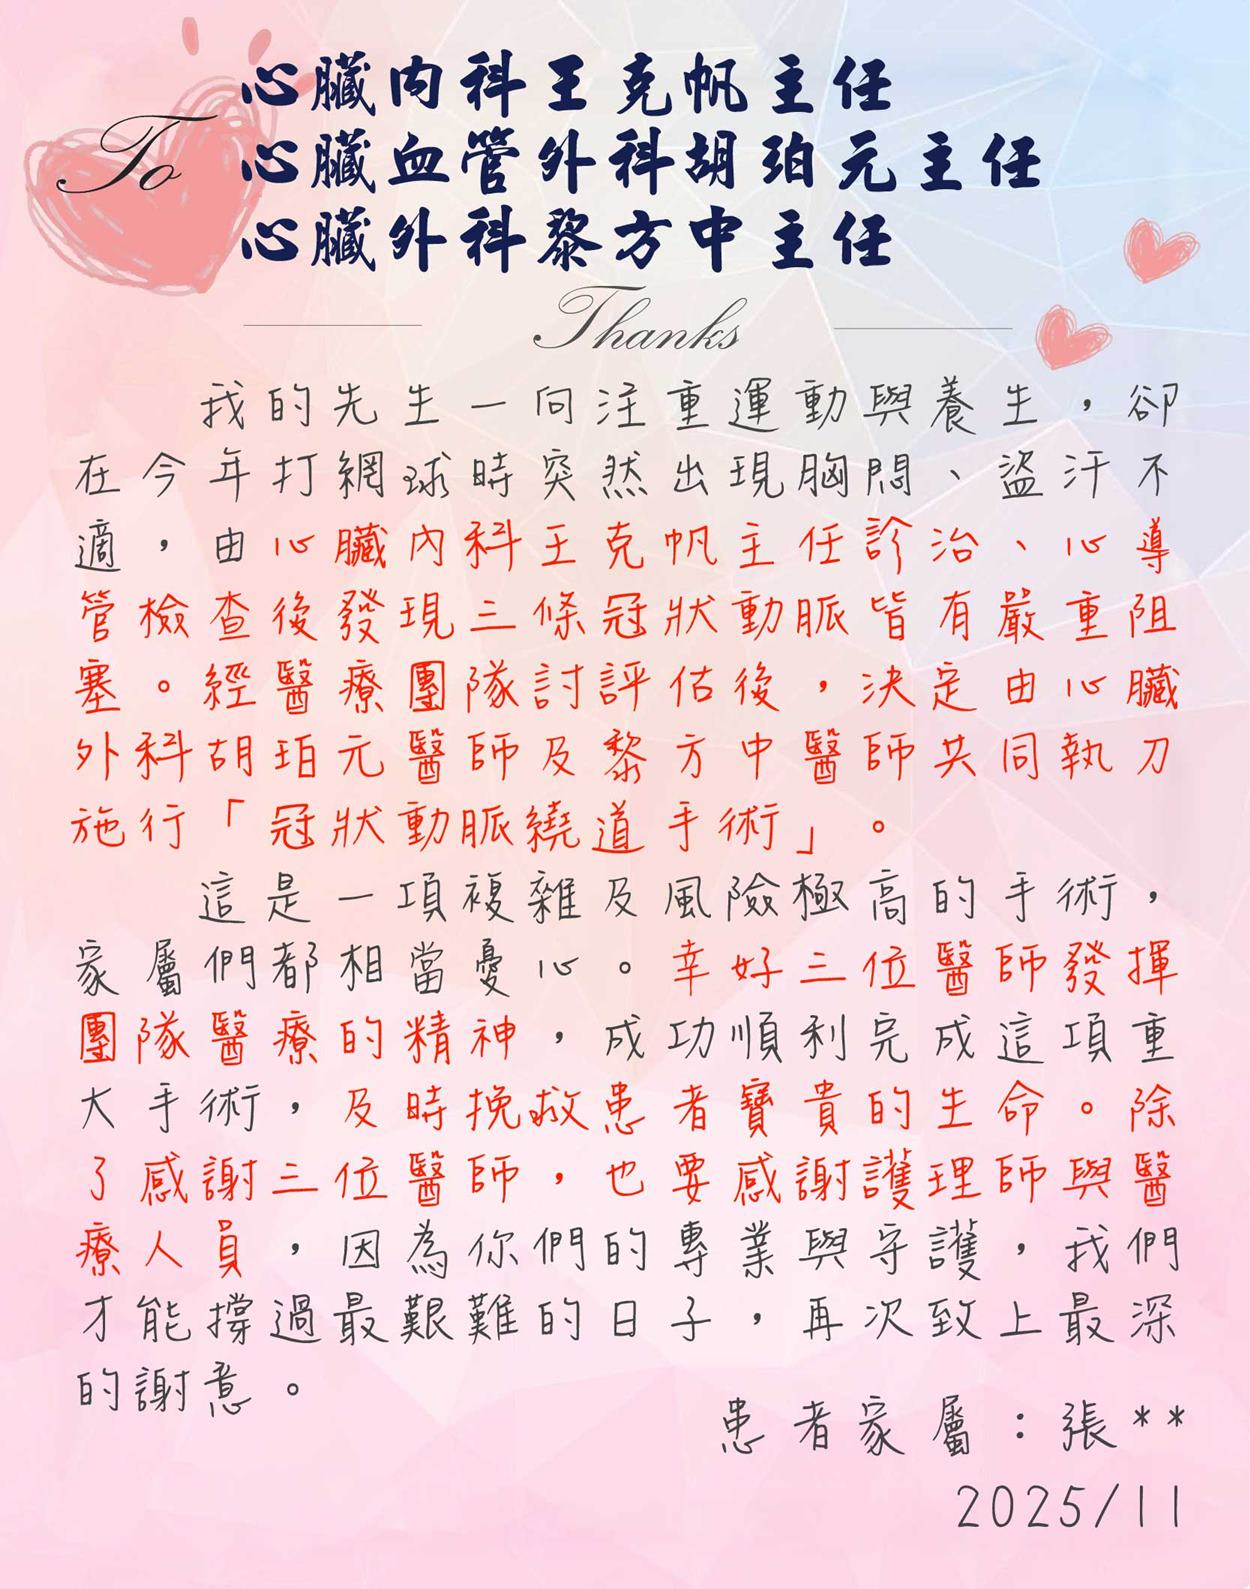 To
心臟內科王克帆主任
心臟血管外科胡珀元主任
心臟外科黎方中主任
Thanks
我的先生一向注重運動與養生，卻
在今年打網球時突然出現胸悶、盜汗不
適，由心臟內科王克帆主任診治、心導
管檢查後發現三條冠狀動脈皆有嚴重阻
塞。經醫療團隊討評估後，決定由心臟
外科胡珀元醫師及黎方中醫師共同執刀
施行「冠狀動脈繞道手術」。
這是一項複雜及風險極高的手術，
家屬們都相當憂心。幸好三位醫師發揮
團隊醫療的精神，成功順利完成這項重
大手術，及時挽救患者寶貴的生命。除
了感謝三位醫師，也要感謝護理師與醫
療人員，因為你們的專業與守護，我們
才能撐過最艱難的日子，再次致上最深
的謝意。
患者家屬：張**
2025/11